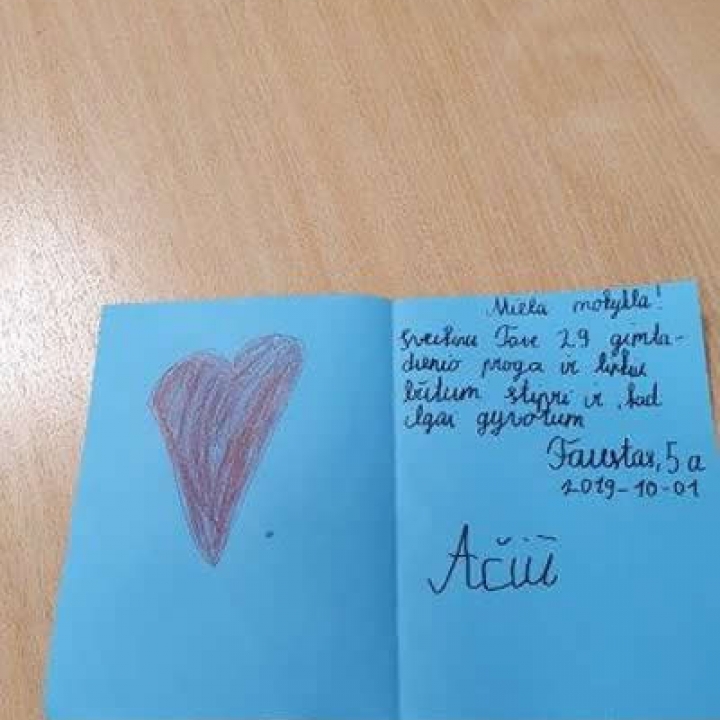 Miela mokykla!
Sveikinu Tave 29 gimta-
dienio proga ir linkiu
būtum stipri ir, kad
ilgai gyvotum
Faustas, 5 a
2019-10-01
Ačiū